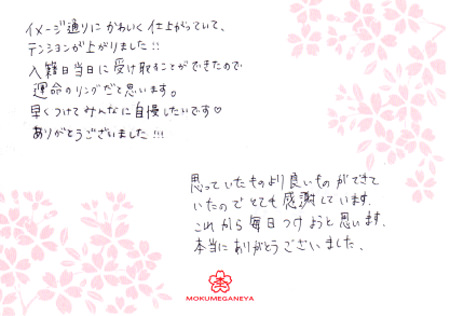 イメージ通りにかわいく仕上がっていて、
テンションが上がりました!!
入籍日当日に受け取ることができたので
運命のリングだと思います。
早くつけてみんなに自慢したいです♡
ありがとうございました!!!
思っていたものより良いものができて
いたのでとても感謝しています。
これから毎日つけようと思います。
本当にありがとうございました。
MOKUMEGANEYA